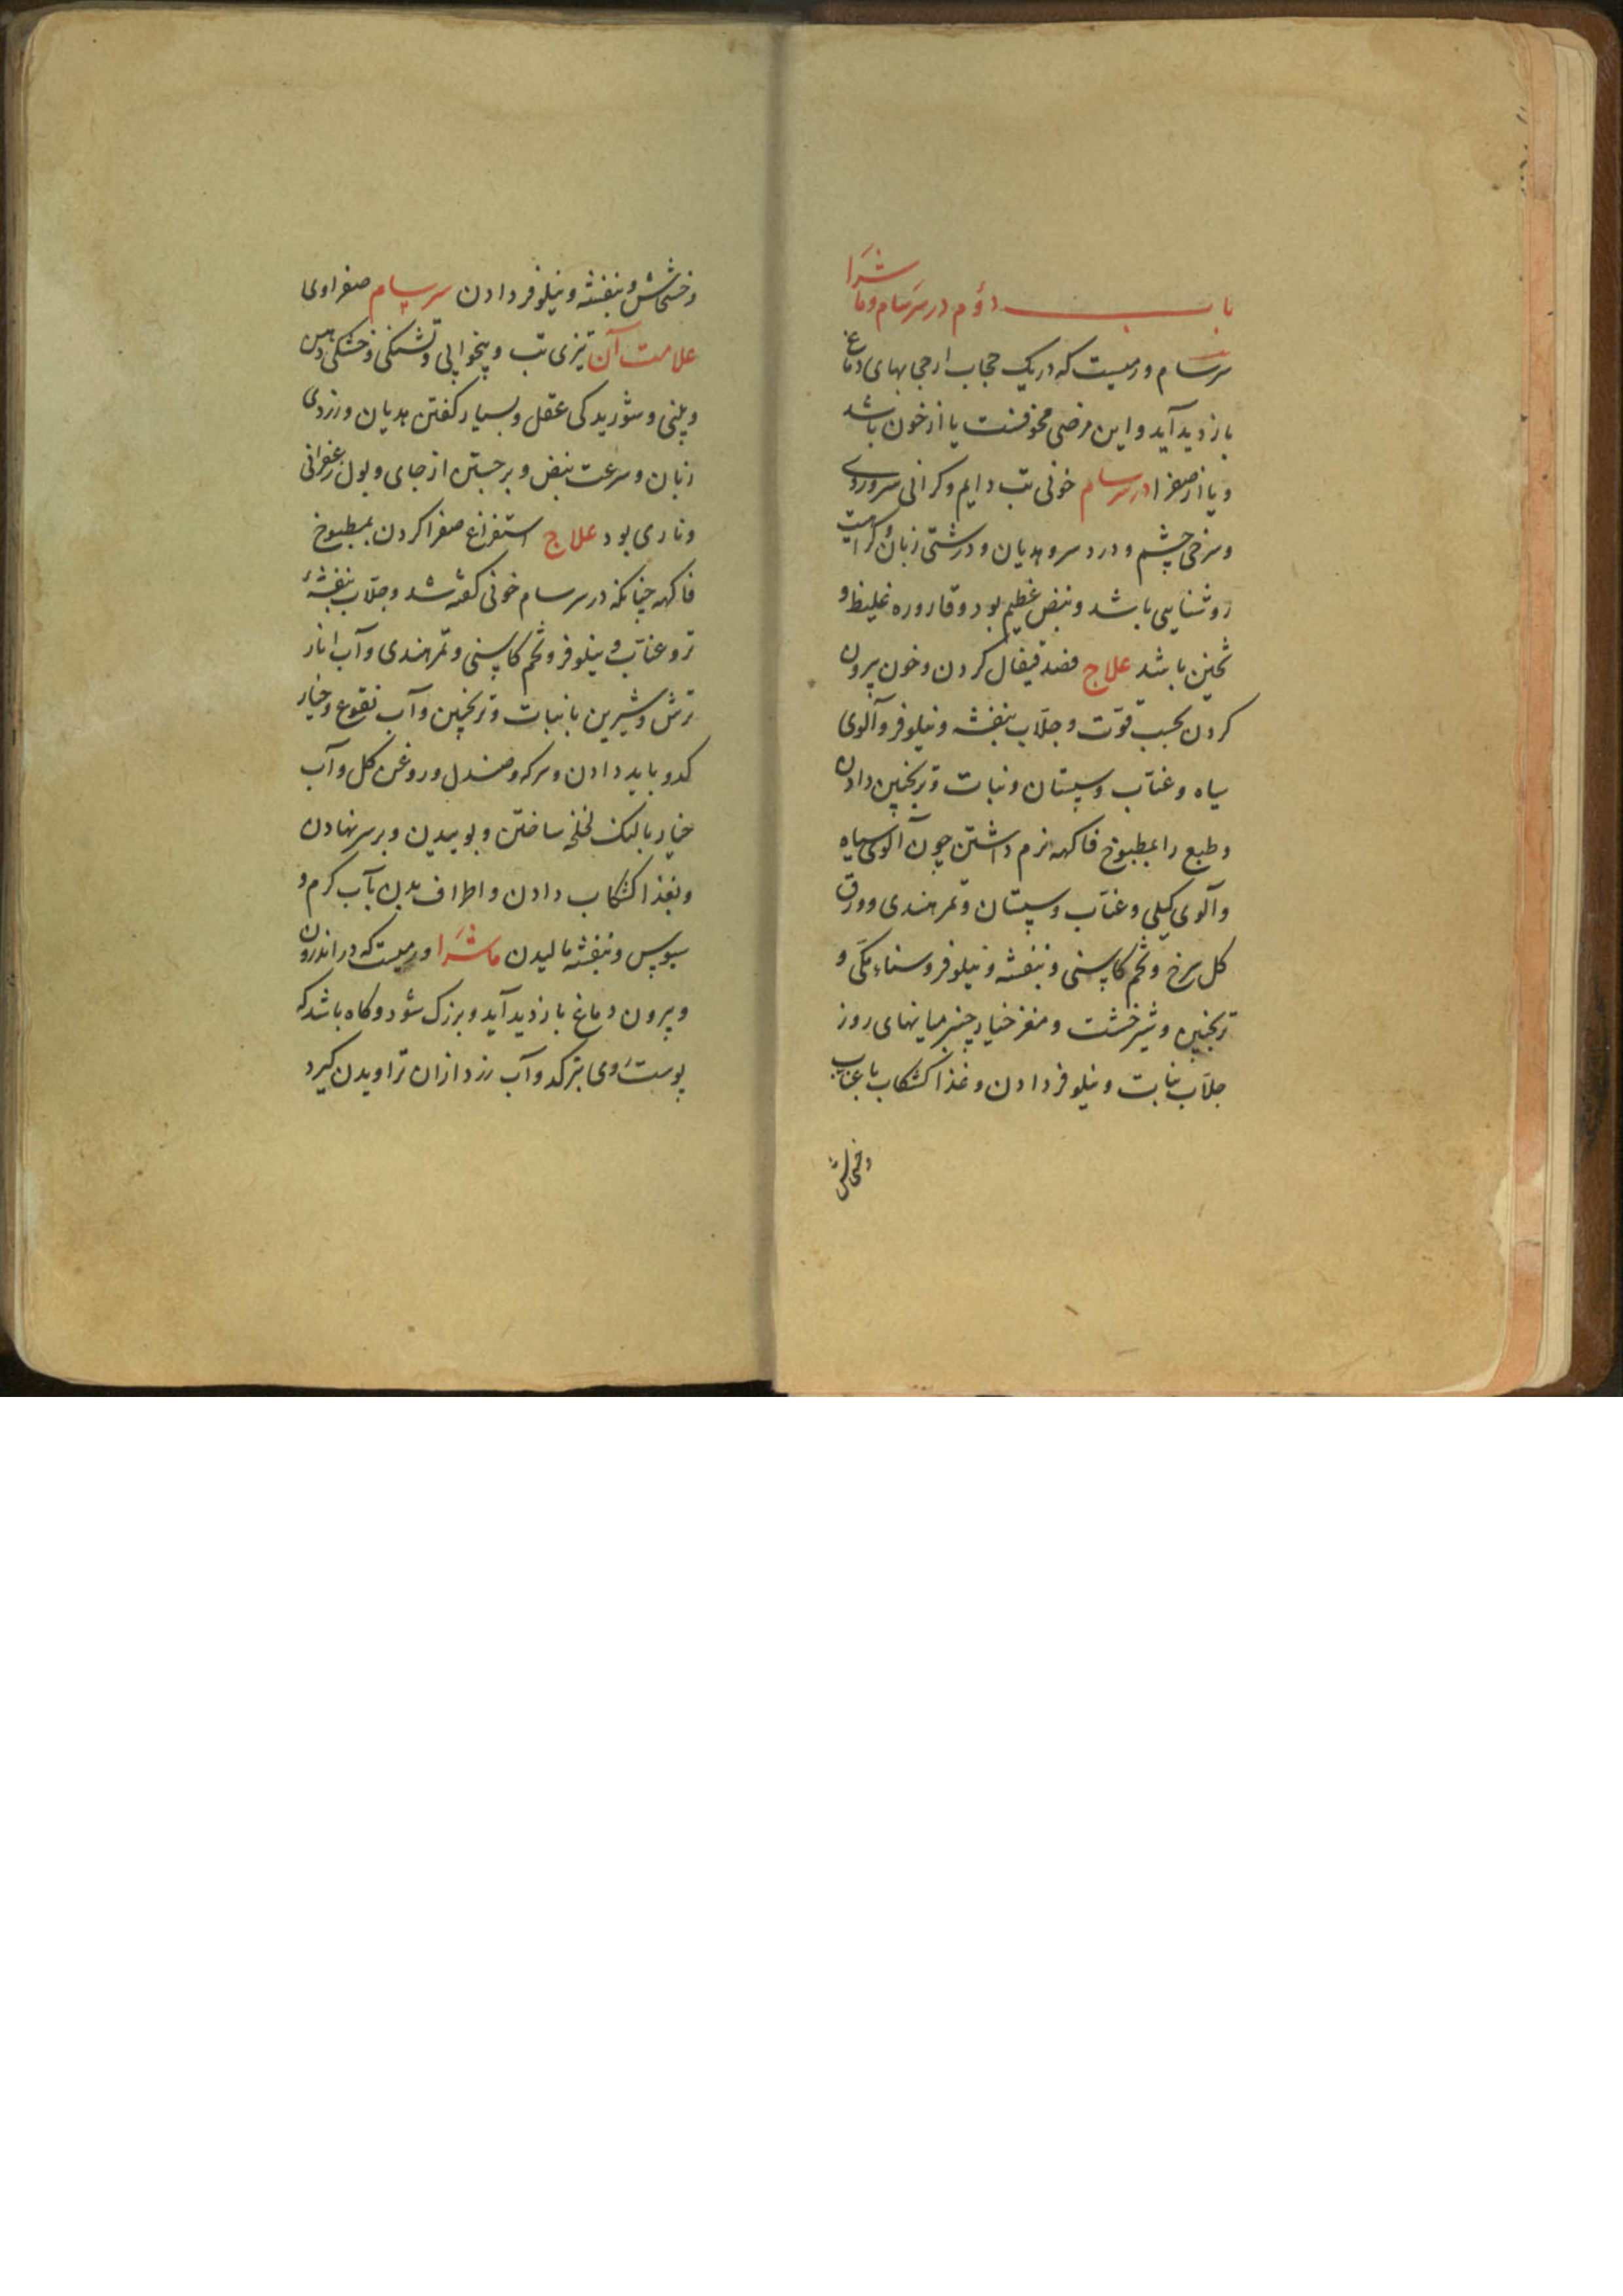 باب دؤم در سرسام و ماشرا
سرسام ورمیست که در یک حجاب از حجابهای دماغ
بازدید آید و این مرضی مخوفست یا از خون باشد
و یا از صفرا در سرسام خونی تب دایم و کرانی سر و روی
و سرخی چشم و درد سر و هدیان و درشتی زبان و کراهیت
روشنایی باشد و نبض عظیم بود و قاروره غلیظ و
ثخین باشد علاج فصد قیفال کردن و خون بیرون
کردن بحسب قوّت و جلّاب بنفشه و نیلوفر و آلوی
سیاه و عنّاب و سپستان و نبات و ترنجبین دادن
و طبع را بمطبوخ فاکهه نرم داشتن چون آلوی سیاه
و آلوی کیلی و عنّاب و سپستان و تمر هندی و ورق
کل سرخ و تخم کاسنی و بنفشه و نیلوفر و سناء مکّی و
ترنجبین و شیرخشت و مغز خیارچنبر میانهای روز
جلّاب نبات و نیلوفر دادن و غذا کشکاب با عناب
و خشخاش
و خشخاش و بنفشه و نیلوفر دادن سرسام صفراوی
علامت آن تیزی تب و بیخوابی و تشنکی و خشکی دهن
و بینی و شوریدکی عقل و بسیار کفتن هدیان و زردی
زبان و سرعت نبض و برجستن از جای و بول زعفرانی
و ناری بود علاج استفراغ صفرا کردن بمطبوخ
فاکهه چنانکه در سرسام خونی کفته شد و جلّاب بنفشهٔ
تر و عنّاب و نیلوفر و تخم کاسنی و تمر هندی و آب انار
ترش و شیرین با نبات و ترنجبین و آب نقوع و خیار
کدو باید دادن و سرکه و صندل و روغن کل و آب
خیار بالنک لخلخه ساختن و بوییدن و بر سر نهادن
و بغذا کشکاب دادن و اطراف بدن بآب کرم و
سبوس و بنفشه مالیدن ماشَرا ورمیست که در اندرون
و بیرون دماغ بازدید آید و بزرک شود و کاه باشد که
پوست وی بترکد و آب زرد ازان تراویدن کیرد